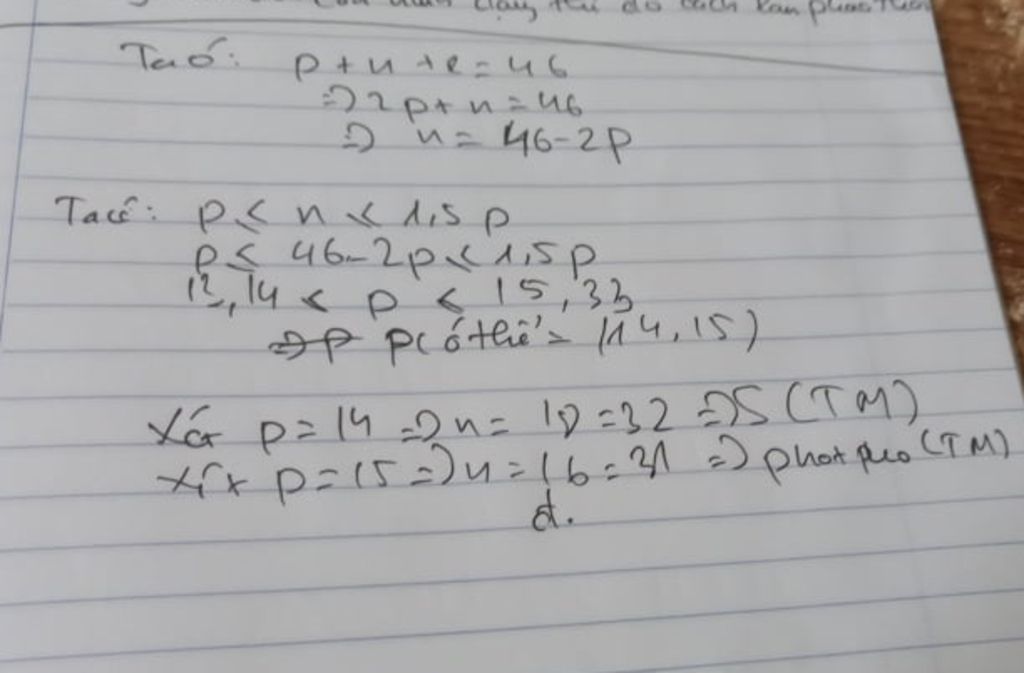 dạng thì do cách
Ta có: p + n + e = 46
=> 2p + n = 46
=> n = 46 - 2p
Ta có: p < n < 1,5p
p < 46 - 2p < 1,5p
13,14 < p < 15,33
=> p p có thể = (14, 15)
Xét p = 14 => n = 18 = 32 => S (TM)
Xét p = 15 => n = 16 = 31 => photpho (TM)
d.